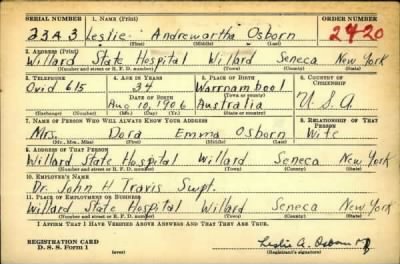 SERIAL NUMBER 1. NAME (Print) ORDER NUMBER
23A3 Leslie Andrewartha Osborn 2420
(First) (Middle) (Last)
2. ADDRESS (Print)
Willard State Hospital Willard Seneca New York
(Number and street or R. F. D. number) (Town) (County) (State)
3. TELEPHONE 4. AGE IN YEARS 5. PLACE OF BIRTH 6. COUNTRY OF CITIZENSHIP
Ovid 615 34 Warrnambool
DATE OF BIRTH (Town or county)
Aug 10, 1906 Australia U.S.A.
(Exchange) (Number) (Mo.) (Day) (Yr.) (State or country)
7. NAME OF PERSON WHO WILL ALWAYS KNOW YOUR ADDRESS 8. RELATIONSHIP OF THAT PERSON
Mrs. Dora Emma Osborn Wife
(Mr., Mrs., Miss) (First) (Middle) (Last)
9. ADDRESS OF THAT PERSON
Willard State Hospital Willard Seneca New York
(Number and street or R. F. D. number) (Town) (County) (State)
10. EMPLOYER'S NAME
Dr. John H Travis Supt.
11. PLACE OF EMPLOYMENT OR BUSINESS
Willard State Hospital Willard Seneca New York
(Number and street or R. F. D. number) (Town) (County) (State)
I AFFIRM THAT I HAVE VERIFIED ABOVE ANSWERS AND THAT THEY ARE TRUE.
REGISTRATION CARD
D. S. S. Form 1 (over) Leslie A. Osborn MD
(Registrant's signature)